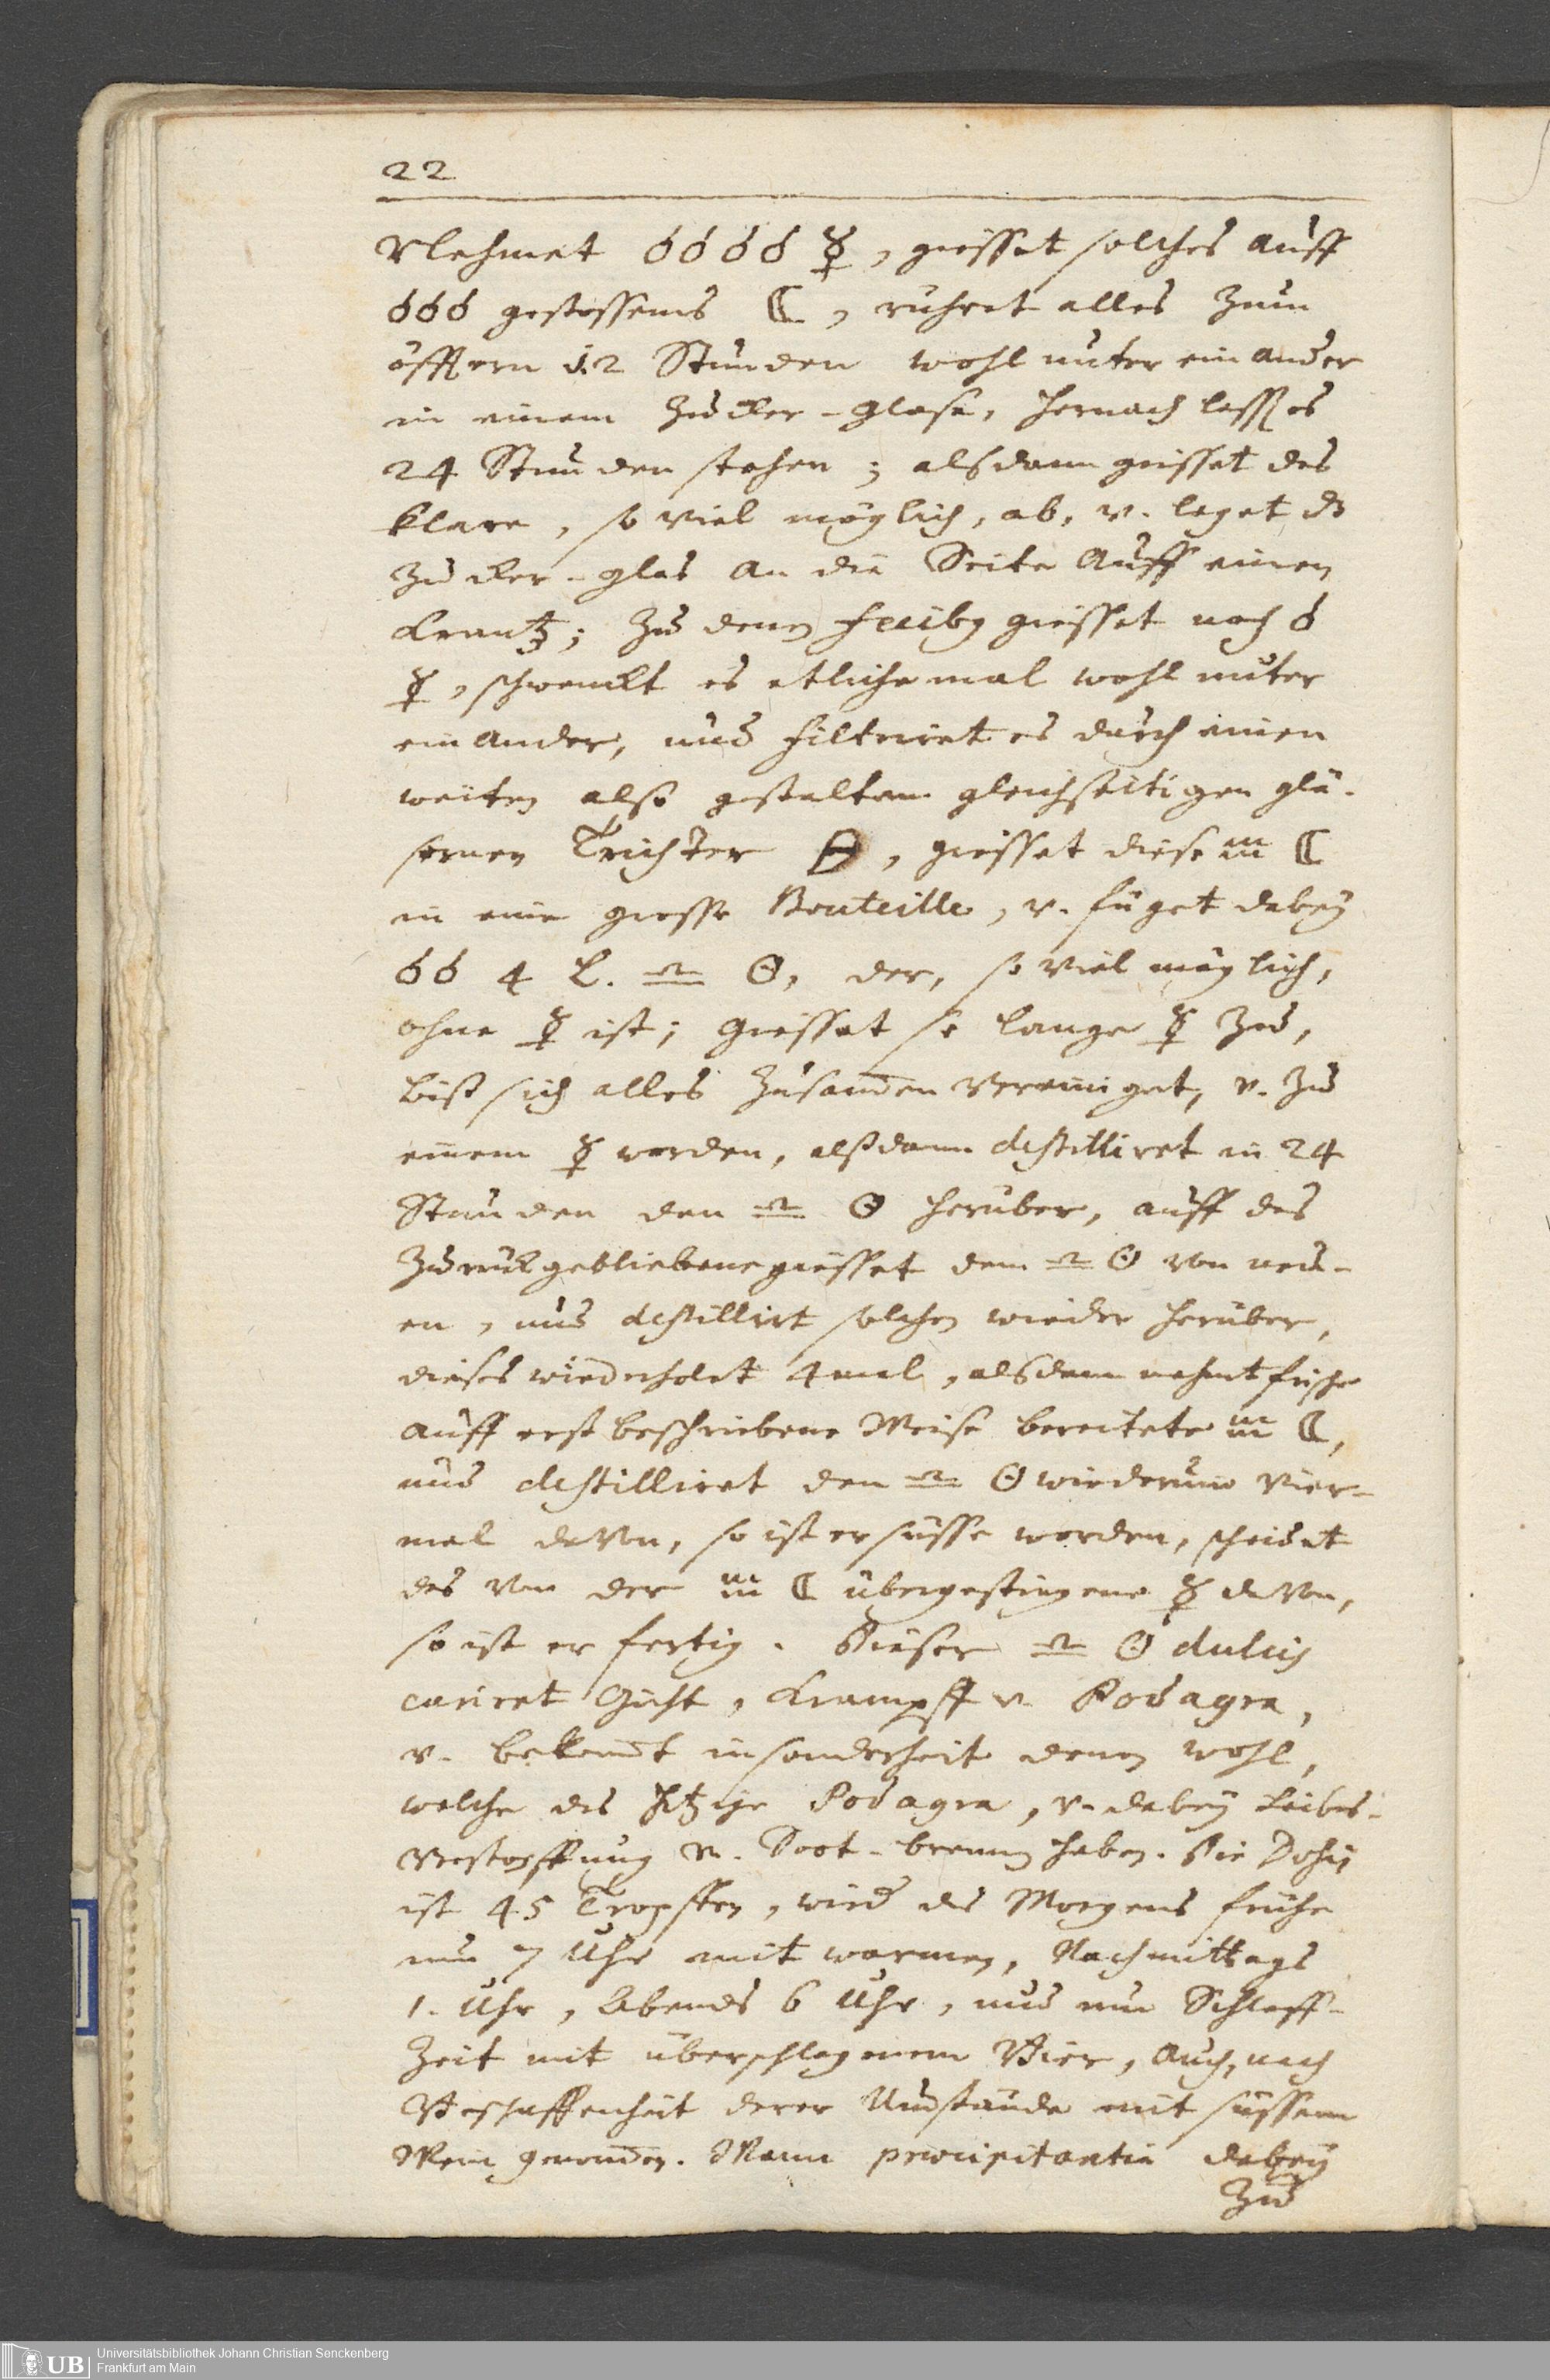 22
Nehmet óóóó ☿, giesset solches auff
óóó gestossenes ☾, rühret alles zum
öfftern 12 Stunden wohl unter einander
in einem Zucker-Glase, hernach lasst es
24 Stunden stehen; alsdann giesset das
klare, so viel möglich, ab, v. leget das
Zucker-glas an die Seite auff einen
Krantz; zu denen giesset noch ó
☿, schwenckt es etliche mal wohl unter
einander, und filtriret es durch einen
weiten also gestalten gleichseitigen glä-
sernen Trichter, giesset diese ☾
in eine grosse Bouteille, v. füget dabey
óó 4 L. ♎ ⊖, der, so viel möglich,
ohne ☿ ist; giesset so lange ☿ zu,
biss sich alles zusammen vereiniget, v. zu
einem ☿ worden, alssdann destilliret in 24
Stunden den ♎ ⊖ herüber, auff das
Zurückgebliebene giesset den ♎ ⊖ von neu-
en, und destillirt solchen wieder herüber,
dieses wiederholet 4 mal, alsdann nehmt frische
auff erst beschriebene Weise bereitete ☾,
und destilliret den ♎ ⊖ wiederum vier-
mal davon, so ist er süsse worden, scheidet
das von der ☾ übergestiegene ☿ davon,
so ist er fertig. Dieser ♎ ⊖ dulcis
curiret Gicht, Krampff v. Podagra,
v. bekomt insonderheit denen wohl,
welche das hitzige Podagra, v. dabey Leibes-
verstopffung v. Soot-brennen haben. Die Dosis
ist 45 Tropffen, wird des Morgens frühe
um 7 Uhr mit warmen, Nachmittags
1. Uhr, Abends 6 Uhr, und um Schlaff-
Zeit mit überschlagenem Bier, auch, nach
Beschaffenheit derer Umstände mit süssem
Wein genommen. Wann praecipitantia dabey
zu
Universitätsbibliothek Johann Christian Senckenberg
Frankfurt am Main
UB